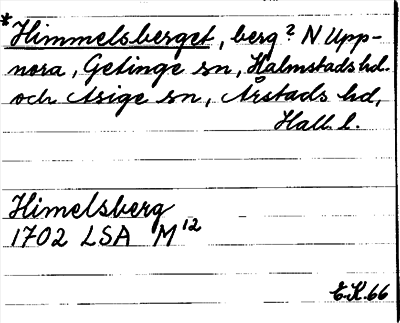 *Himmelsberget, berg? N Upp-
nora, Getinge sn, Halmstads hd.
och Asige sn, Årstads hd,
Hall. l.
Himelsberg
1702 LSA M12
E.K. 66